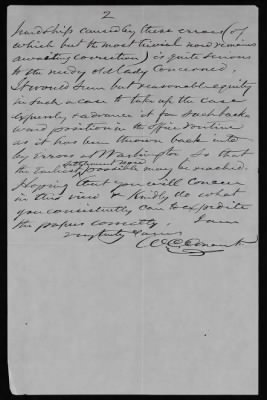 2
hardship caused by these errors (of
which but the most trivial now remains
awaiting correction) is quite serious
to the needy old lady concerned.
It would seem but reasonable equity
in such a case to take up the case
specially & advance it for such back
ward position in the office routine
as it has been thrown back into
by errors at Washington so that
the earliest settlement now possible may be reached.
Hoping that you will concur
in this view & kindly do what
you consistently can to expedite
the papers correctly I am
very truly yours